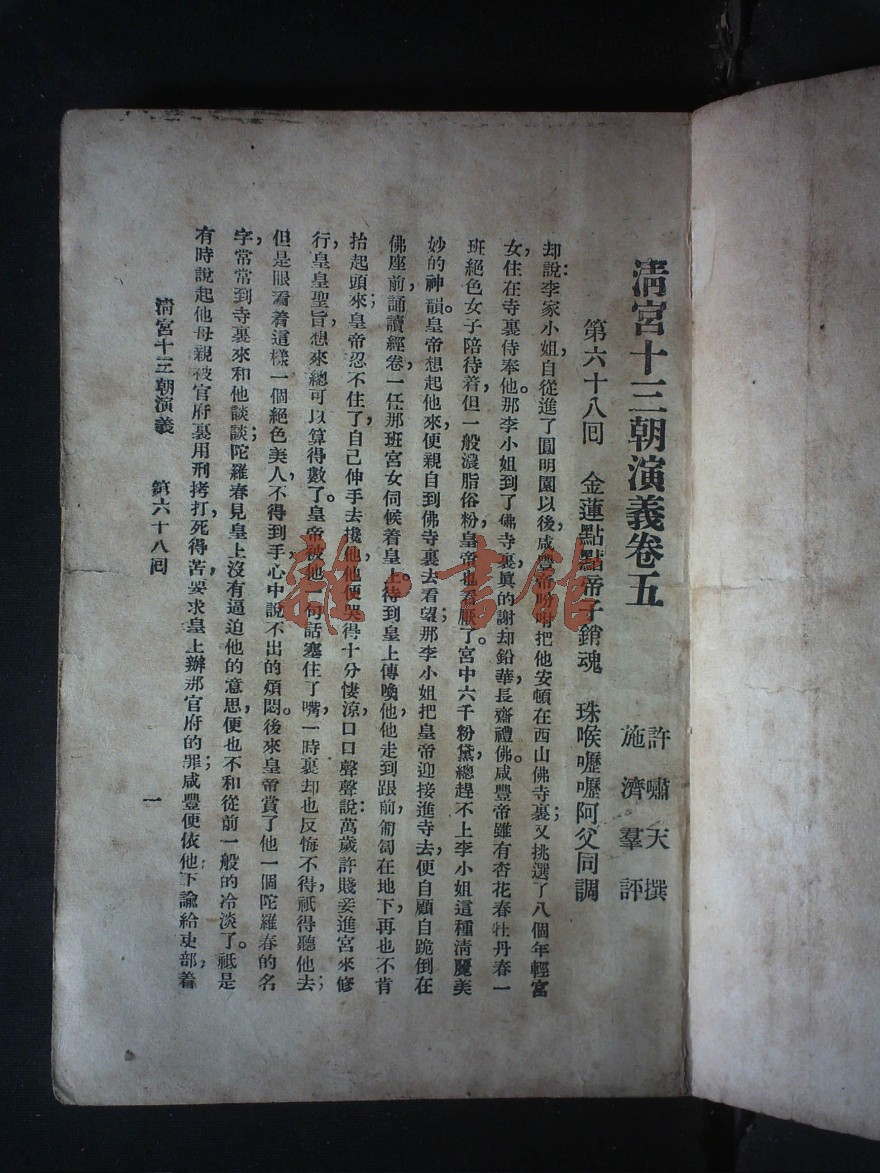 淸宮十三朝演義卷五
許嘯天撰
施濟羣評
第六十八回　金蓮點點帝子銷魂　珠喉嚦嚦阿父同調
却說：李家小姐，自從進了圓明園以後，咸豐帝吩咐把他安頓在西山佛寺裏；又挑選了八個年輕宮
女，住在寺裏侍奉他。那李小姐到了佛寺裏，眞的謝却鉛華，長齋禮佛。咸豐帝雖有杏花春牡丹春一
班絕色女子陪待着，但一般濃脂俗粉，皇帝也看厭了。宮中六千粉黛，總趕不上李小姐這種淸麗美
妙的神韻。皇帝想起他來，便親自到佛寺裏去看望；那李小姐把皇帝迎接進寺去，便自顧自跪倒在
佛座前，誦讀經卷，一任那班宮女伺候着皇上。待到皇上傳喚他，他走到跟前，匍匐在地下，再也不肯
抬起頭來；皇帝忍不住了，自己伸手去攙他，他便哭得十分悽涼，口口聲聲說：萬歲許賤妾進宮來修
行，皇皇聖旨，想來總可以算得數了。皇帝被他一句話塞住了嘴，一時裏却也反悔不得，祇得聽他去；
但是眼看着這樣一個絕色美人，不得到手，心中說不出的煩悶。後來皇帝賞了他一個陀羅春的名
字，常常到寺裏來和他談談；陀羅春見皇上沒有逼迫他的意思，便也不和從前一般的冷淡了。祇是
有時說起他母親被官府裏用刑拷打，死得苦，要求皇上辦那官府的罪；咸豐便依他，下諭給吏部，着
淸宮十三朝演義　第六十八回　一
雜·書館